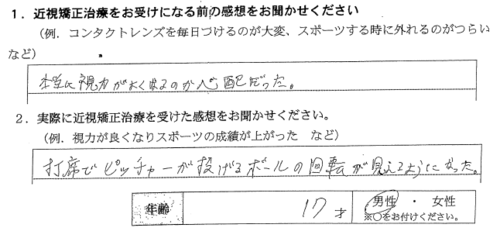 1．近視矯正治療をお受けになる前の感想をお聞かせください
（例．コンタクトレンズを毎日づけるのが大変、スポーツする時に外れるのがつらい
など）
本当に視力がよくなるのか心配だった。
2．実際に近視矯正治療を受けた感想をお聞かせください。
（例．視力が良くなりスポーツの成績が上がった など）
打席でピッチャーが投げるボールの回転が見えるようになった。
年齢 17才 男性 ・ 女性
※○をお付けください。